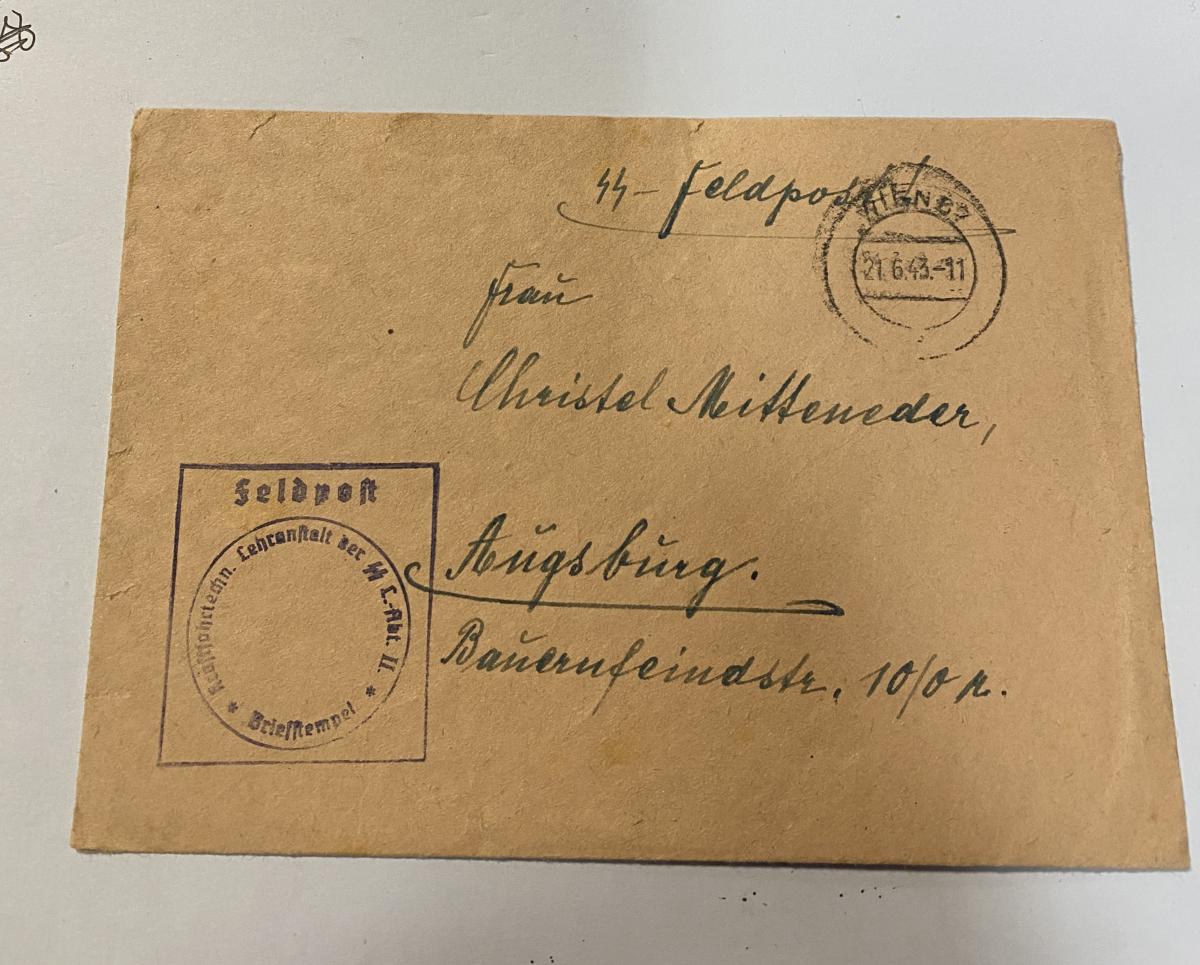 SS-Feldpost!
WIEN 62
21.6.43.-11
Frau
Christel Mitteneder,
Augsburg.
Bauernfeindstr. 10/0 r.
Feldpost
* Kraftfahrtechn. Lehranstalt der SS L.-Abt. II. *
Briefstempel